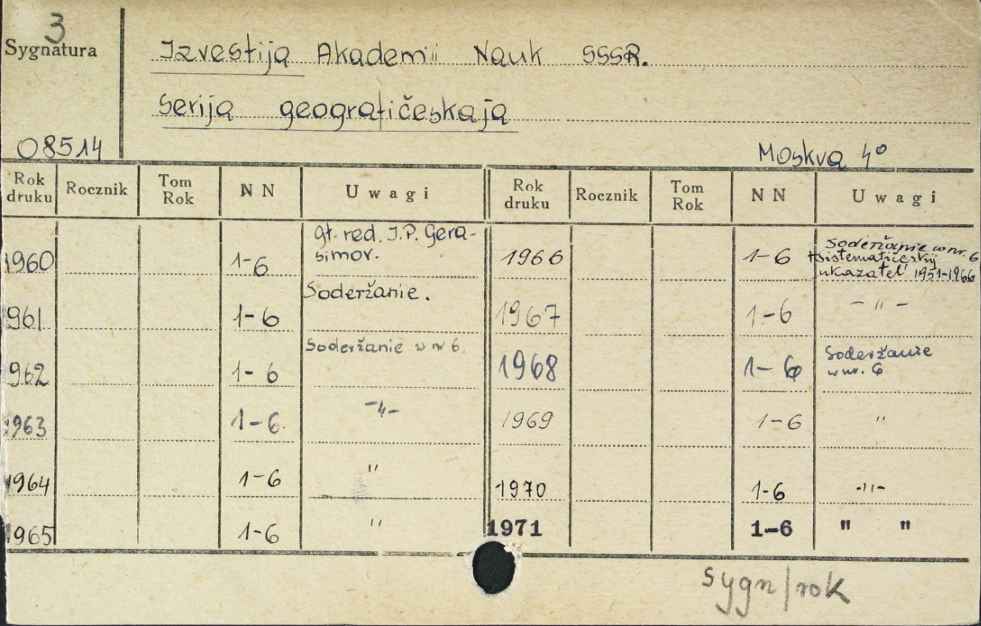 3
Sygnatura
08514
Izvestija Akademii Nauk SSSR.
Serija geografičeskaja
Moskva 4º
Rok druku Rocznik Tom Rok N N Uwagi Rok druku Rocznik Tom Rok N N Uwagi
1960 1-6 gł. red. I.P. Gera-
simov.
Soderžanie.
1961 1-6
1962 1-6 Soderžanie w nr 6.
1963 1-6. -"-
1964 1-6 "
1965 1-6 "
1966 1-6 Soderžanie w nr. 6
+sistematičeskij
ukazatel' 1951-1966
1967 1-6 - " -
1968 1-6 Soderžanie
w nr. 6
1969 1-6 "
1970 1-6 -"-
1971 1-6 " "
sygn/rok